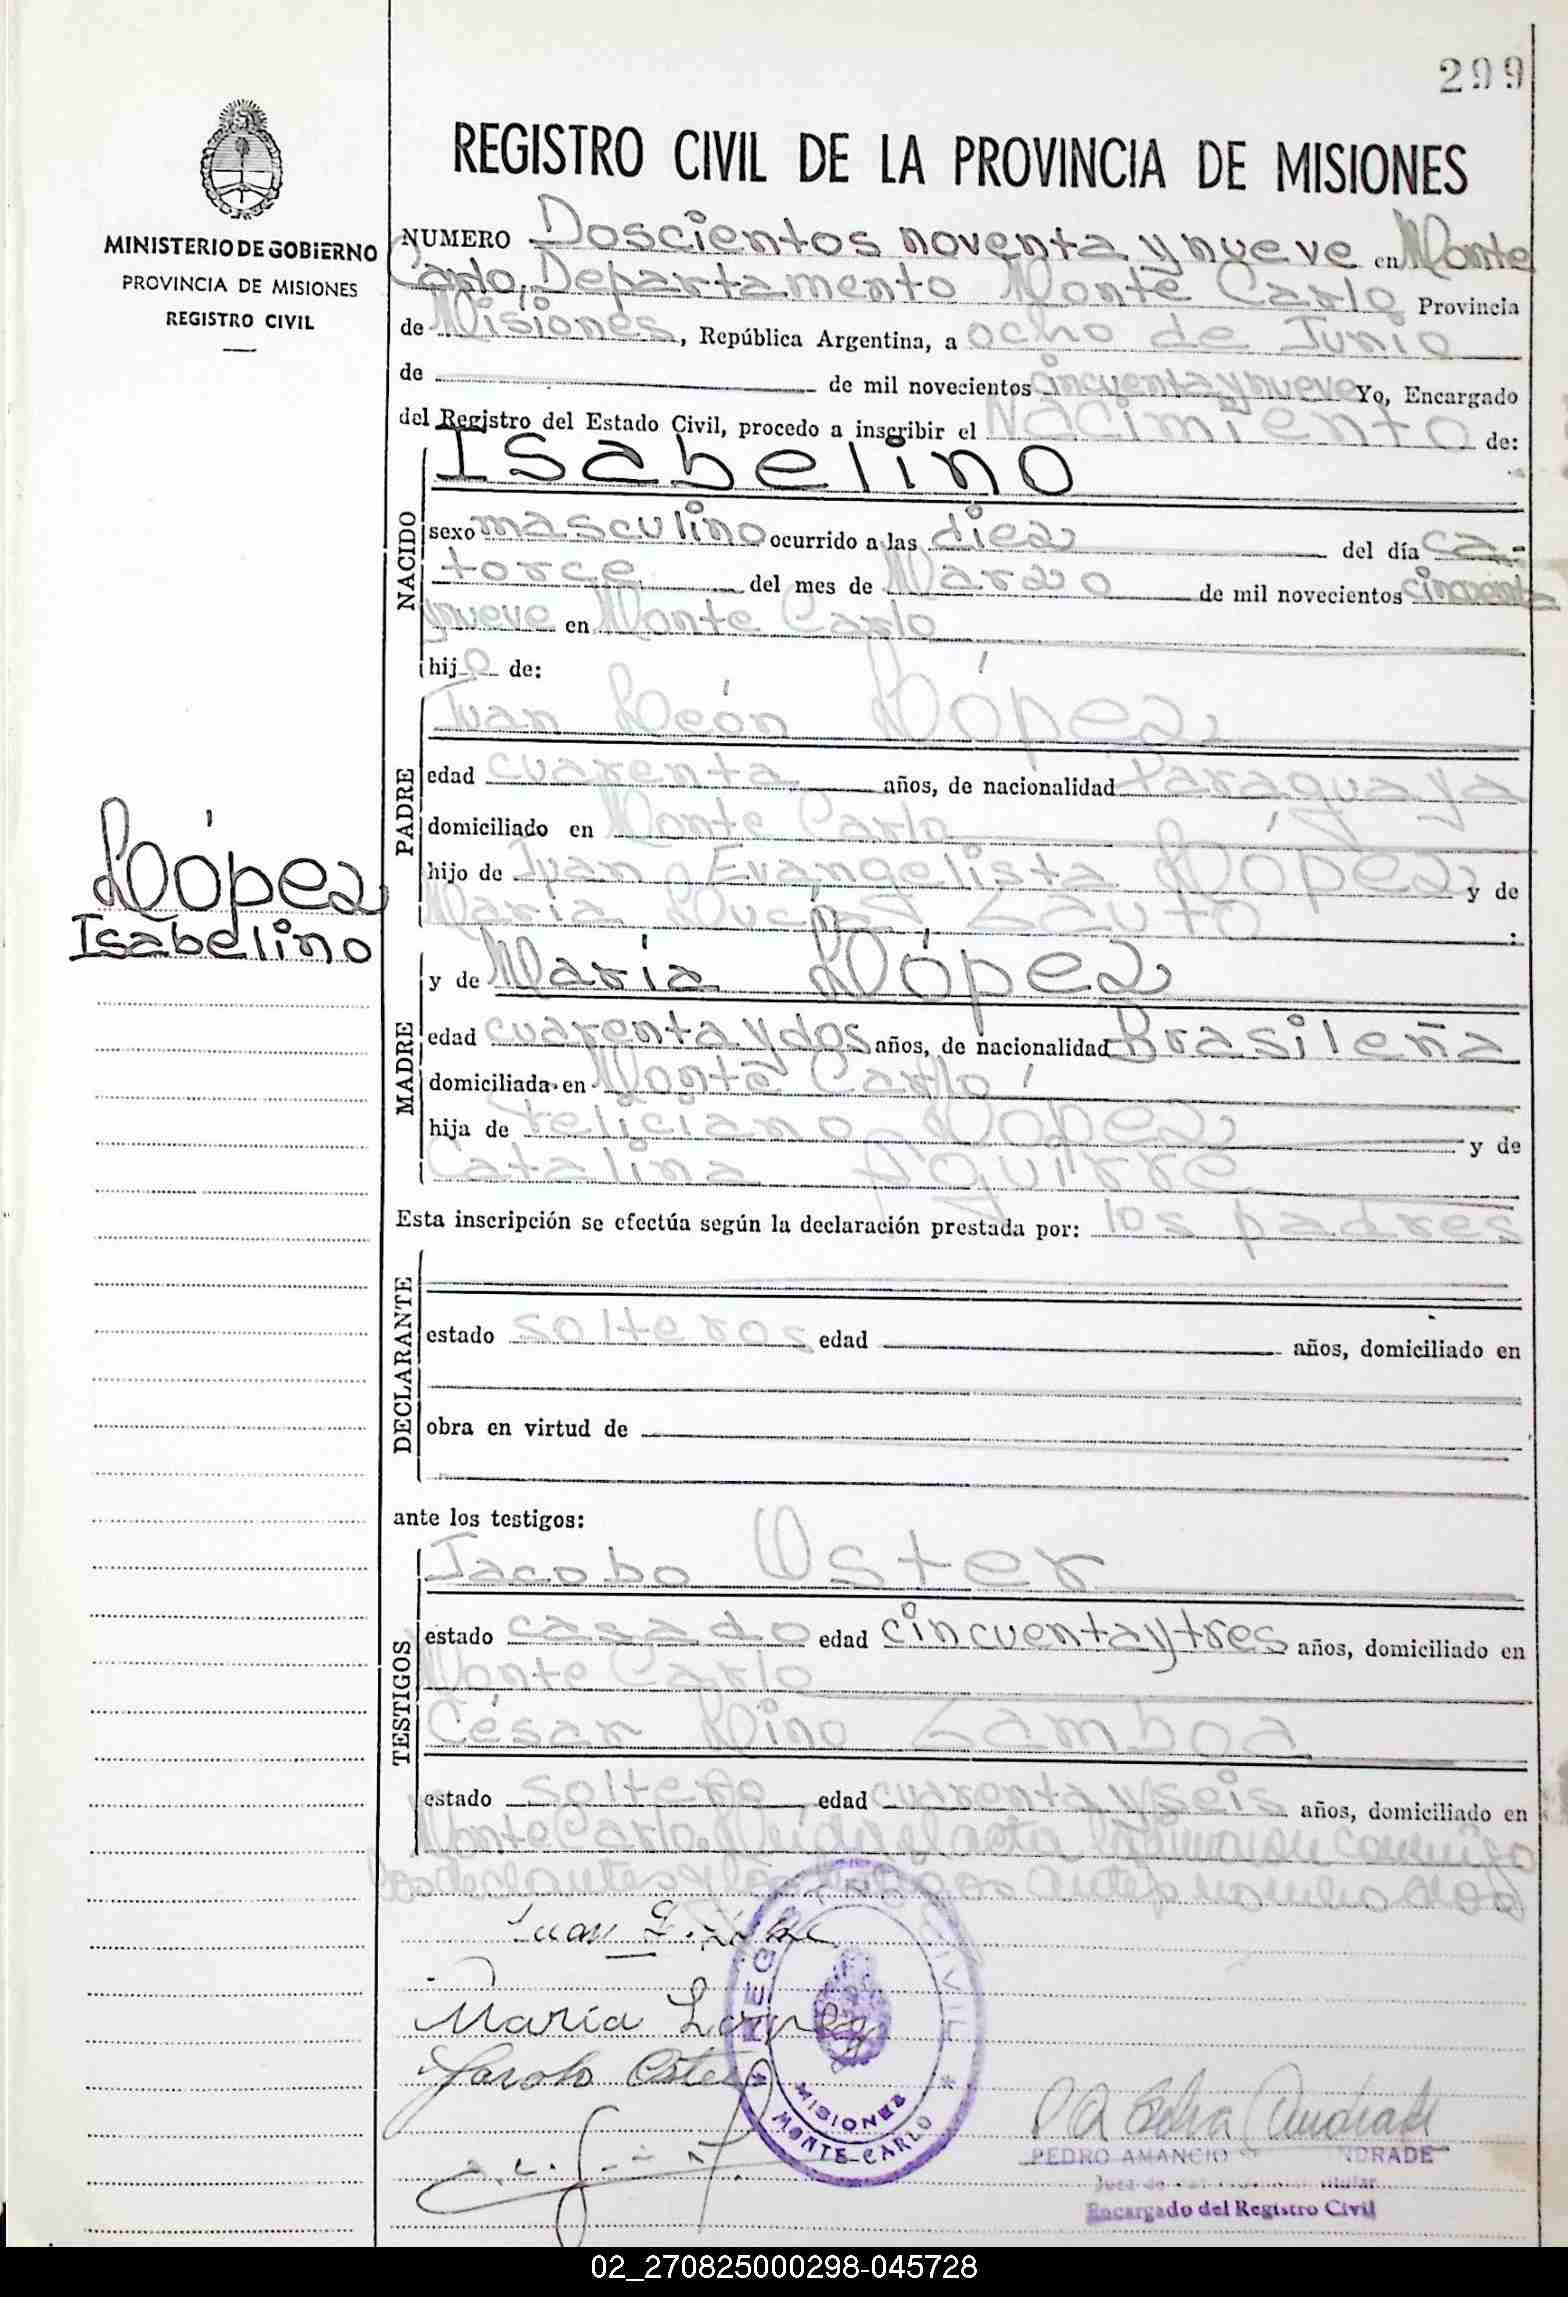 299
REGISTRO CIVIL DE LA PROVINCIA DE MISIONES
MINISTERIO DE GOBIERNO
PROVINCIA DE MISIONES
REGISTRO CIVIL
NUMERO Doscientos noventa y nueve en Monte
Carlo, Departamento Monte Carlo Provincia
de Misiones, República Argentina, a ocho de Junio
de de mil novecientos cincuenta y nueve Yo, Encargado
del Registro del Estado Civil, procedo a inscribir el Nacimiento de:
Isabelino
NACIDO
sexo masculino ocurrido a las diez del día ca-
torce del mes de Marzo de mil novecientos cincuenta
y nueve en Monte Carlo
hijo de:
Juan León López
PADRE
edad cuarenta años, de nacionalidad Paraguaya
domiciliado en Monte Carlo
hijo de Juan Evangelista López y de
María
López
Isabelino
y de María López
MADRE
edad cuarenta y dos años, de nacionalidad Brasileña
domiciliada en Monte Carlo
hija de Feliciano López y de
Catalina Aguirre
Esta inscripción se efectúa según la declaración prestada por: los padres
DECLARANTE
estado solteros edad años, domiciliado en
obra en virtud de
ante los testigos:
Jacobo Oster
TESTIGOS
estado casado edad cincuenta y tres años, domiciliado en
Monte Carlo
César Lino Zamboa
estado soltero edad cuarenta y seis años, domiciliado en
Monte Carlo. el acta conmigo
los declarantes y los testigos antes nombrados
Juan L.
María Lopez
Jacobo Oster
REGISTRO CIVIL
MISIONES
MONTE-CARLO
PEDRO AMANCIO ANDRADE
Encargado del Registro Civil
02_270825000298-045728